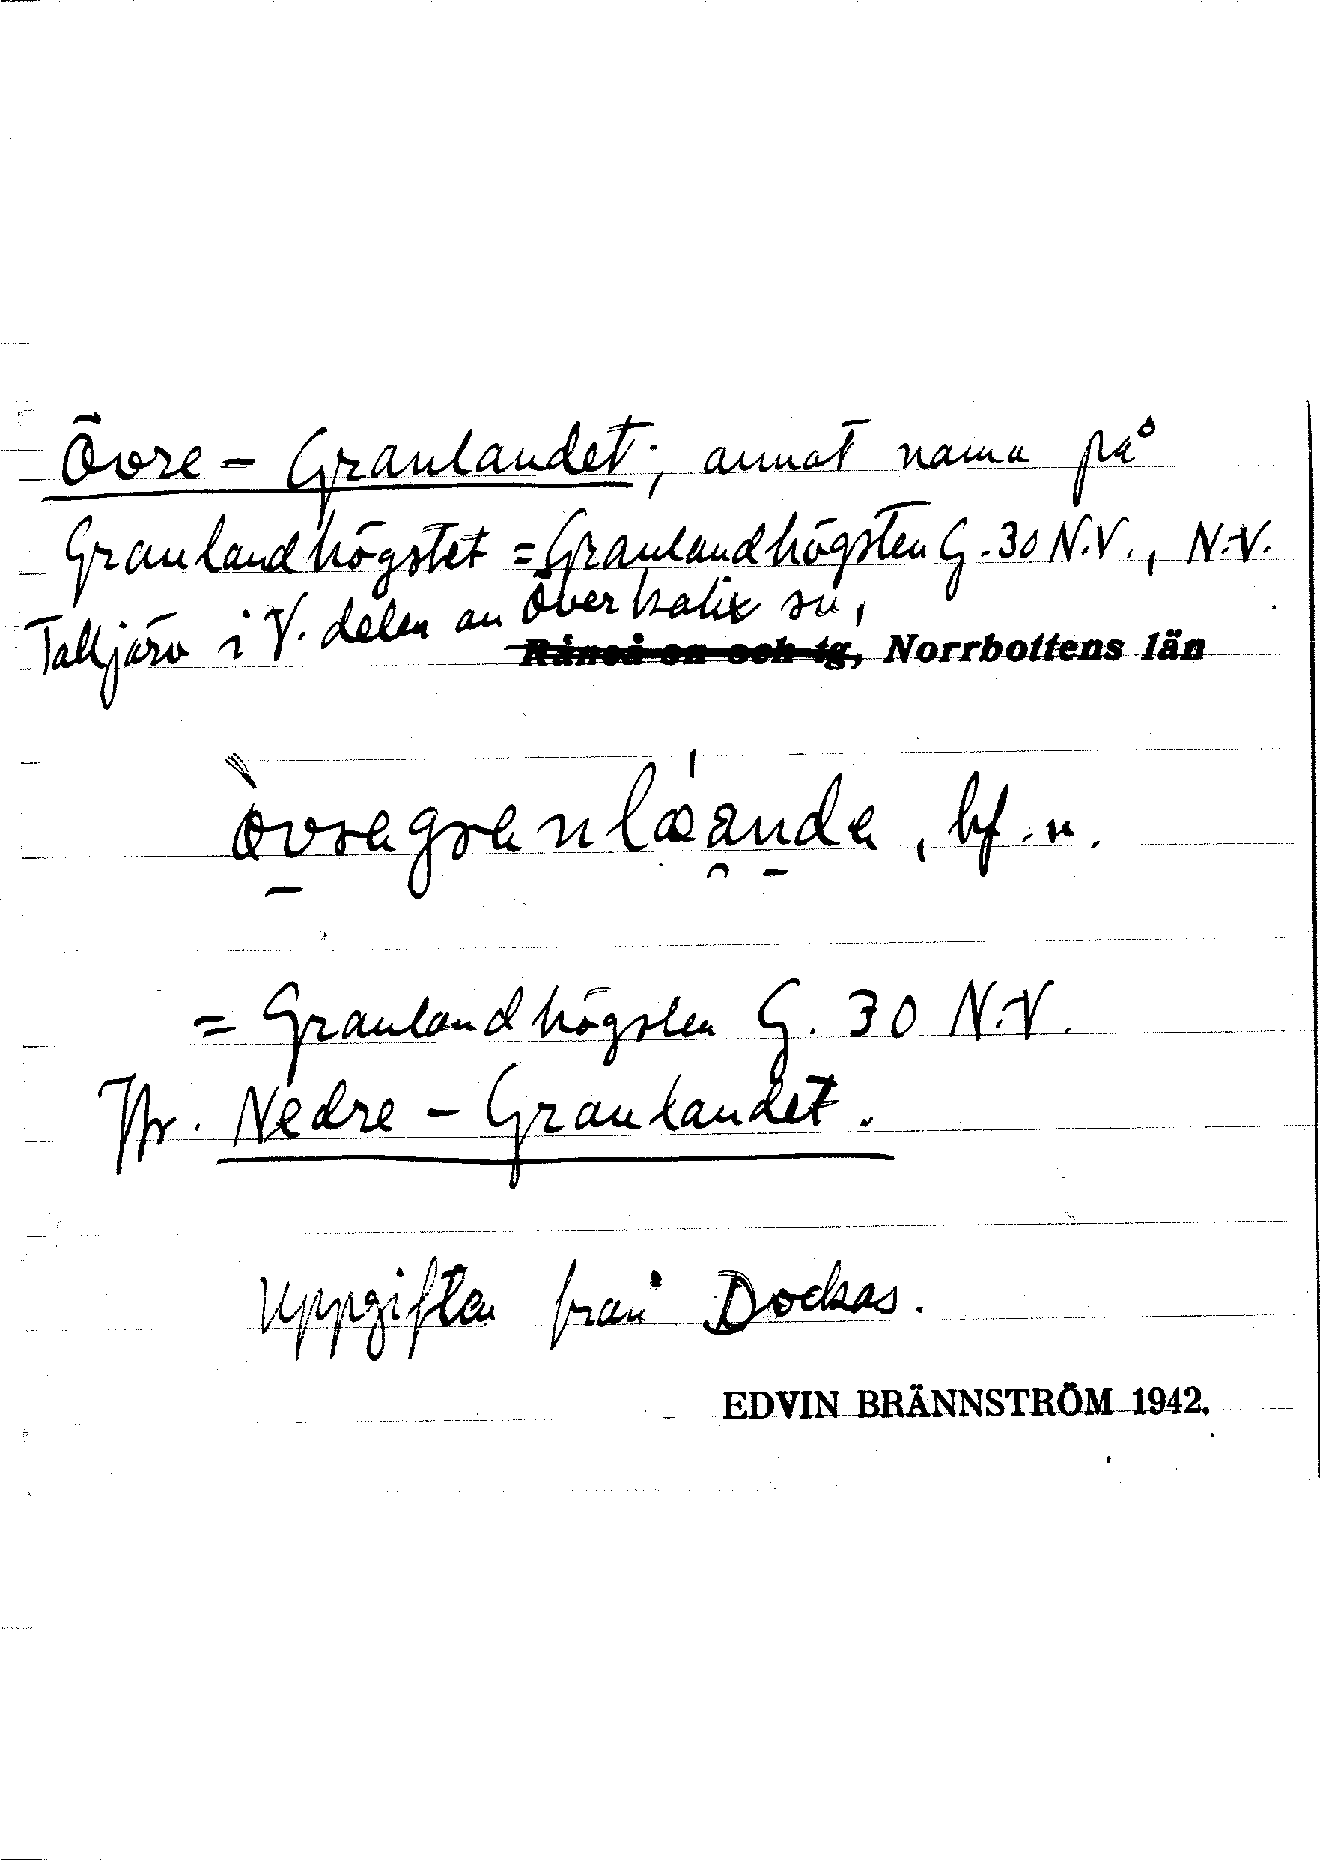 Övre-Granlandet; annat namn på
Granlandhögstet = Granlandhögsten G. 30 N.V., N.V.
Talljärv i V. delen av Överkalix sn,
Råneå sn och tg, Norrbottens län
òvragranlàanda, bf. n.
= Granlandhögsten G. 30 N.V.
Jfr. Nedre-Granlandet.
Uppgiften från Dockas.
EDVIN BRÄNNSTRÖM 1942.